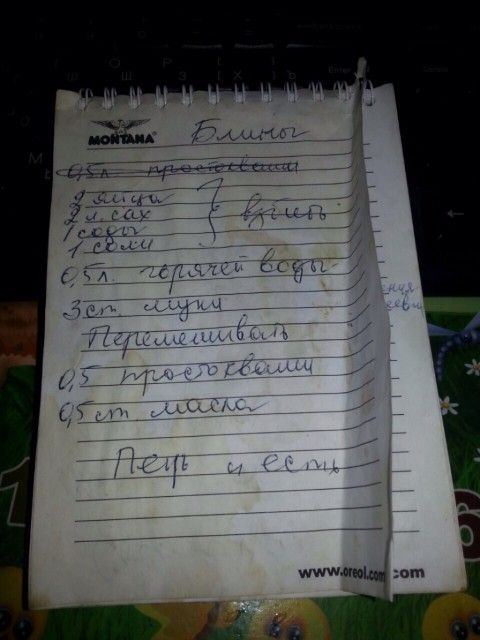 MONTANA
Блины
0,5л. простокваши
2 яйца
2 л. сах
1 соды
1 соли
взбить
0,5л. горячей воды
3 ст. муки
Перемешивать
0,5 простокваши
0,5 ст масла
Печь и есть
www.oreol.com
.com